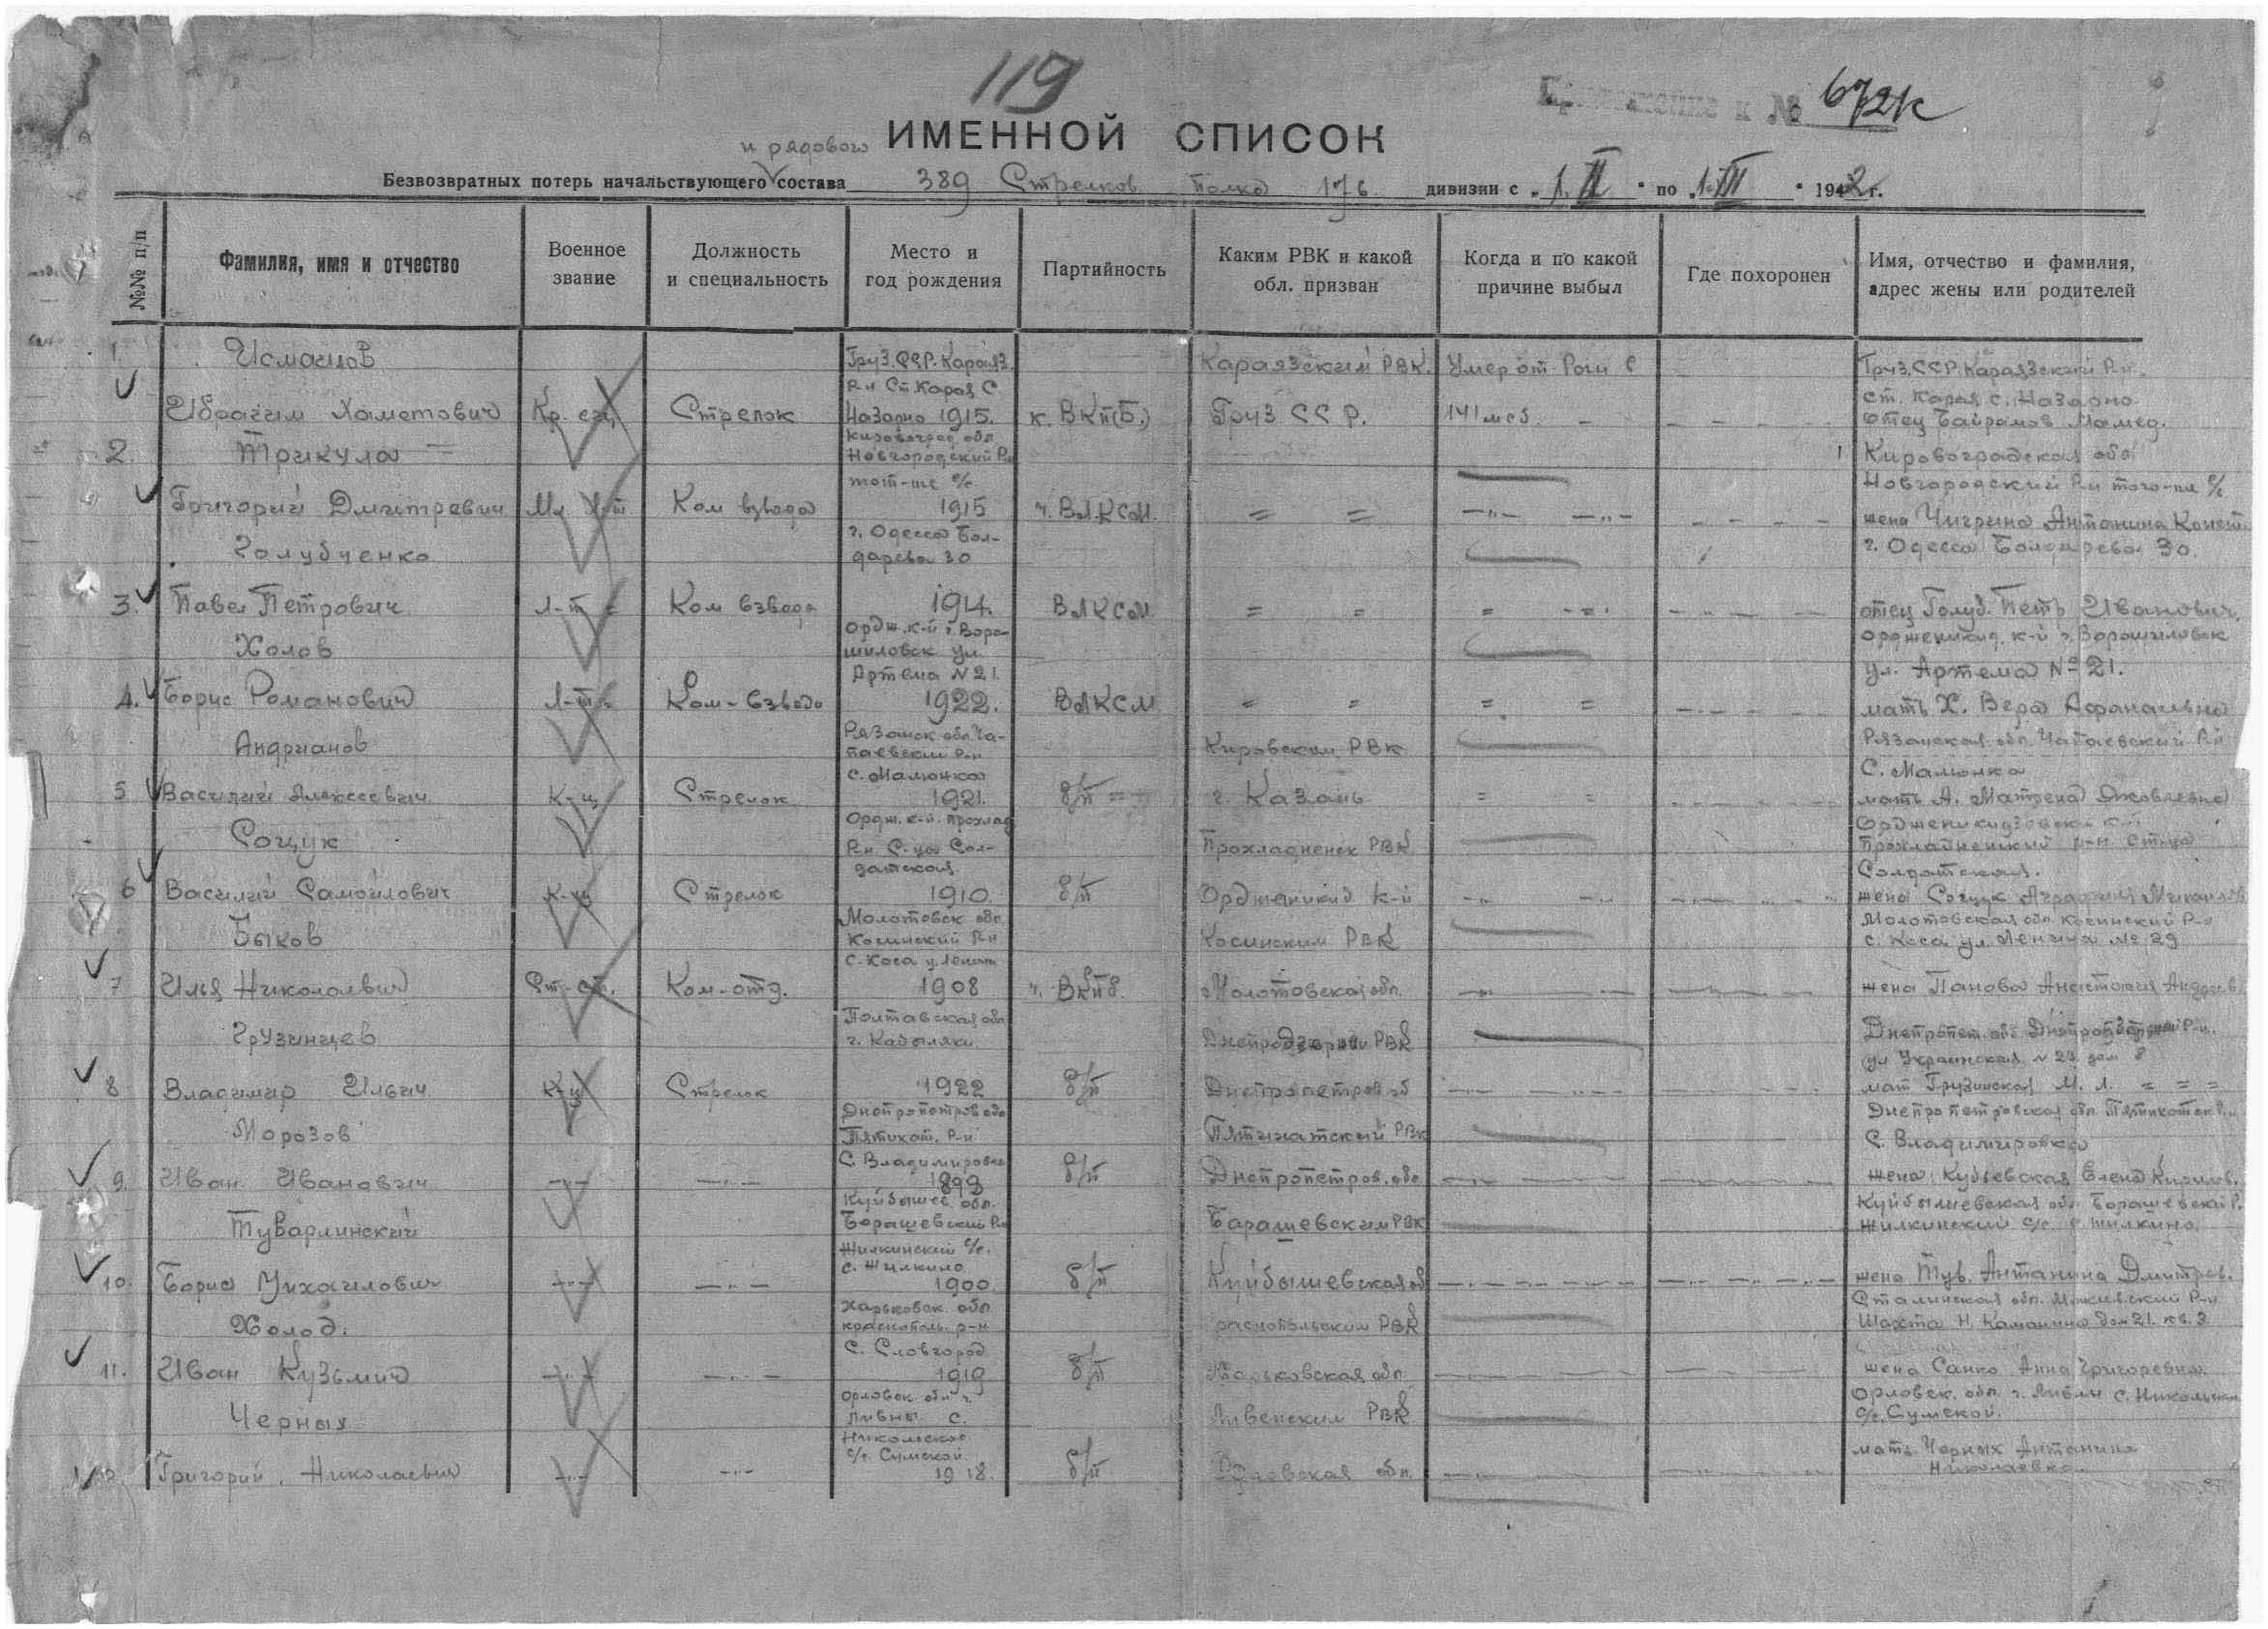 119
к № 672к
ИМЕННОЙ СПИСОК
и рядового
Безвозвратных потерь начальствующего состава 389 Стрелков полка 176 дивизии с „1. II “ по „1. III “ 1942 г.
№№ п/п
Фамилия, имя и отчество
Военное звание
Должность и специальность
Место и год рождения
Партийность
Каким РВК и какой обл. призван
Когда и по какой причине выбыл
Где похоронен
Имя, отчество и фамилия, адрес жены или родителей
1. Исмаилов
Ибрагим Хаметович
Стрелок
Груз. ССР. Караяз.
Р-н Ст. Карая С.
Назарло 1915.
к. ВКП(Б.)
Караязским РВК.
Груз ССР.
Умер от Ран в
141 мсб
Груз. ССР. Караязский Р-н.
ст. Карая с. Назарло
отец Байрамов Мамед.
2. Трикула
Григорий Дмитревич
Мл. Л-т
Ком взвода
Кировоград. обл
Новгородский Р-н
тот-же с/с
1915
ч. ВЛКСМ.
Кировоградская обл
Новгородский Р-н того-же с/с
жена Чигрина Антанина Конст.
3. Голубченко
Павел Петрович
Л-т
Ком взвода
г. Одесса Бол-
дарева 30
1914.
ВЛКСМ
г. Одесса Болдарева 30.
отец Голуб. Петр Иванович.
4. Холов
Борис Романович
Л-т
Ком-взвода
Ордж. к-й г. Воро-
шиловск ул.
Артема N 21.
1922.
ВЛКСМ
Орджоникид. к-й г. Ворошиловск
ул. Артема № 21.
мать Х. Вера Афанасьевна
5 Андрианов
Василий Алексеевич
К-ц
Стрелок
Рязанск обл. Ча-
паевский Р-н
С. Малюнка
1921.
б/п
Кировским РВК
г. Казань
Рязанская обл. Чапаевский Р-н
С. Малюнка
мать А. Матрена Яковлевна
6 Сочук
Василий Самойлович
К-ц
Стрелок
Ордж. к-й. Прохлад
Р-н С-ца Сол-
датская
1910.
б/п
Прохладненск РВК
Орджаникид к-й
Орджоникидзевски к-й
Прохладненский р-н Ст-ца
Солдатская.
жена Сочук
7 Быков
Илья Николаевич
Ст-ст.
Ком-отд.
Молотовск обл.
Косинский Р-н
С. Коса у. Ленин
1908
ч. ВКПб.
Косинским РВК
Молотовская обл.
Молотовская обл. Косинский Р-н
с. Коса ул Ленина № 29
жена Панова Анастасия Андреев.
8 Грузинцев
Владимир Ильич
К-ц
Стрелок
Полтавская обл
г. Кобыляки
1922
б/п
РВК
Днепропетров об
ул Украинская N 23 дом 8
мат Грузинская М. Л.
9. Морозов
Иван Иванович
Днепропетров обл
Пятихат. Р-н
С. Владимировка
1899
б/п
Пятихатский РВК
Днепропетров. обл
Днепропетровская обл. Пятихатск Р-н
С. Владимировка
жена Кубьевская Елена Кирилов.
10. Туварлинский
Борис Михайлович
Куйбышев. обл.
Борашевский Р-н
Жилкинский с/с.
с. Жилкино
1900.
б/п
Барашевским РВК
Куйбышевская об
Куйбышевская обл Борашевский Р.
Жилкинский с/с с Жилкино.
жена Тув. Антанина Дмитрев.
11. Холод.
Иван Кузьмич
Харьковск. обл
краснополь. р-н
С. Словгород
1919
б/п
РВК
Харьковская обл
Сталинская обл. Р-н
Шахта Н. Каманина дом 21. кв. 3
жена Санко Анна Григоревна.
12. Черных
Григорий. Николаевич
Орловск обл. г.
Ливны с.
Никольское
с/с. Сумской
1918.
б/п
Ливенским РВК
Орловская обл.
Орловск. обл. г. Ливны с. Никольское
с/с. Сумской.
мать Черных Антанина
Николаевна.